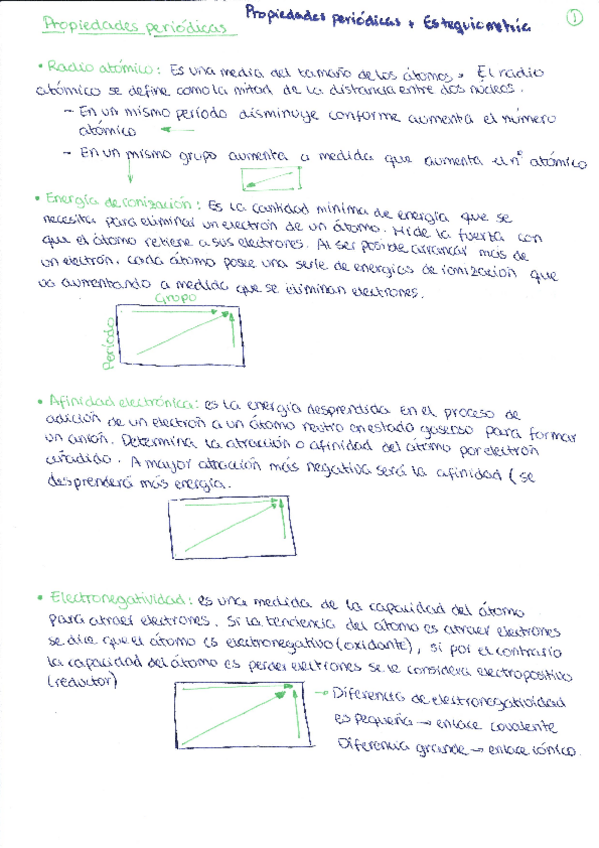 Propiedades periódicas + Estequiometría
1
Propiedades periódicas
• Radio atómico: Es una media del tamaño de los átomos. El radio
atómico se define como la mitad de la distancia entre dos núcleos.
- En un mismo período disminuye conforme aumenta el número
atómico ←
- En un mismo grupo aumenta a medida que aumenta el nº atómico
• Energía de ionización: Es la cantidad mínima de energía que se
necesita para eliminar un electrón de un átomo. Mide la fuerza con
que el átomo retiene a sus electrones. Al ser posible arrancar más de
un electrón, cada átomo posee una serie de energías de ionización que
va aumentando a medida que se eliminan electrones.
Grupo
Período
• Afinidad electrónica: es la energía desprendida en el proceso de
adición de un electrón a un átomo neutro en estado gaseoso para formar
un anión. Determina la atracción o afinidad del átomo por electrón
añadido. A mayor atracción más negativa será la afinidad (se
desprenderá más energía.
• Electronegatividad: es una medida de la capacidad del átomo
para atraer electrones. Si la tendencia del átomo es atraer electrones
se dice que el átomo es electronegativo (oxidante), si por el contrario
la capacidad del átomo es perder electrones se le considera electropositivo
(reductor)
→ Diferencia de electronegatividad
es pequeña → enlace covalente
Diferencia grande → enlace iónico.